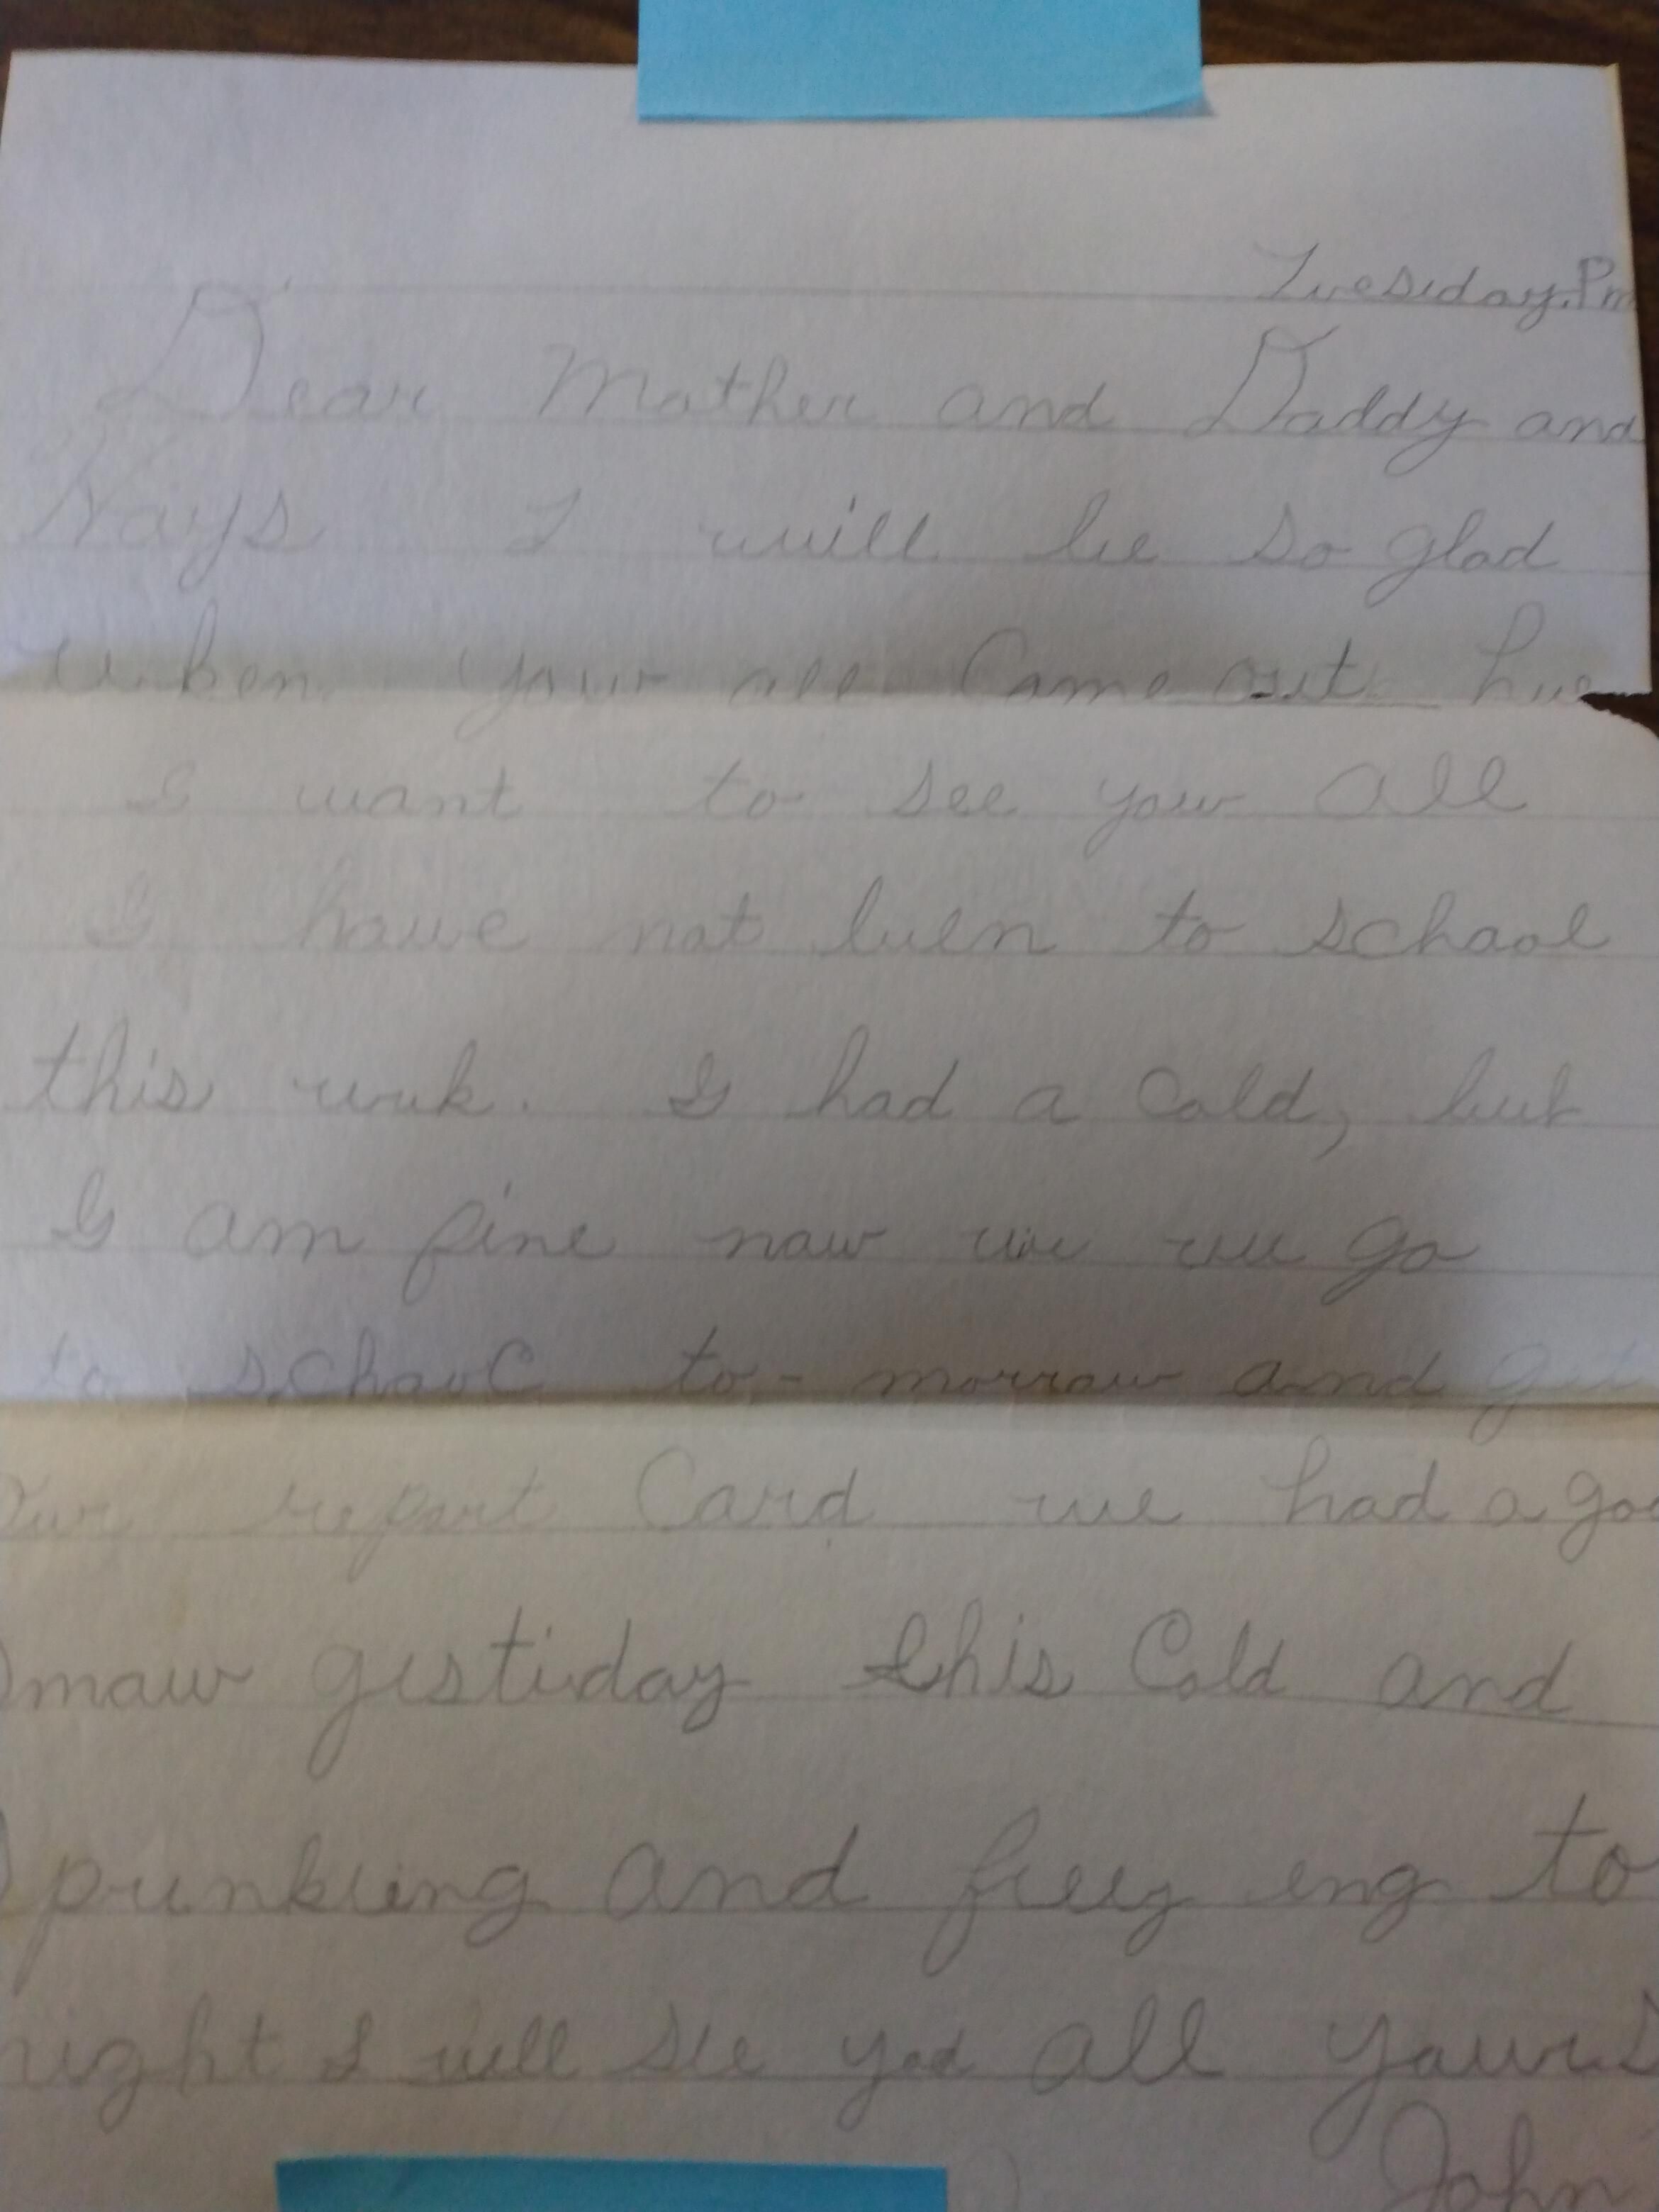 Tuesday. Pm
Dear Mother and Daddy and
I will be so glad
when your all Come out
I want to see your all
I have not been to school
this week. I had a cold, but
I am fine now we go
to school to-morrow and get
our report Card we had a
gestiday this Cold and
and eng to
night I will see you all yours
John